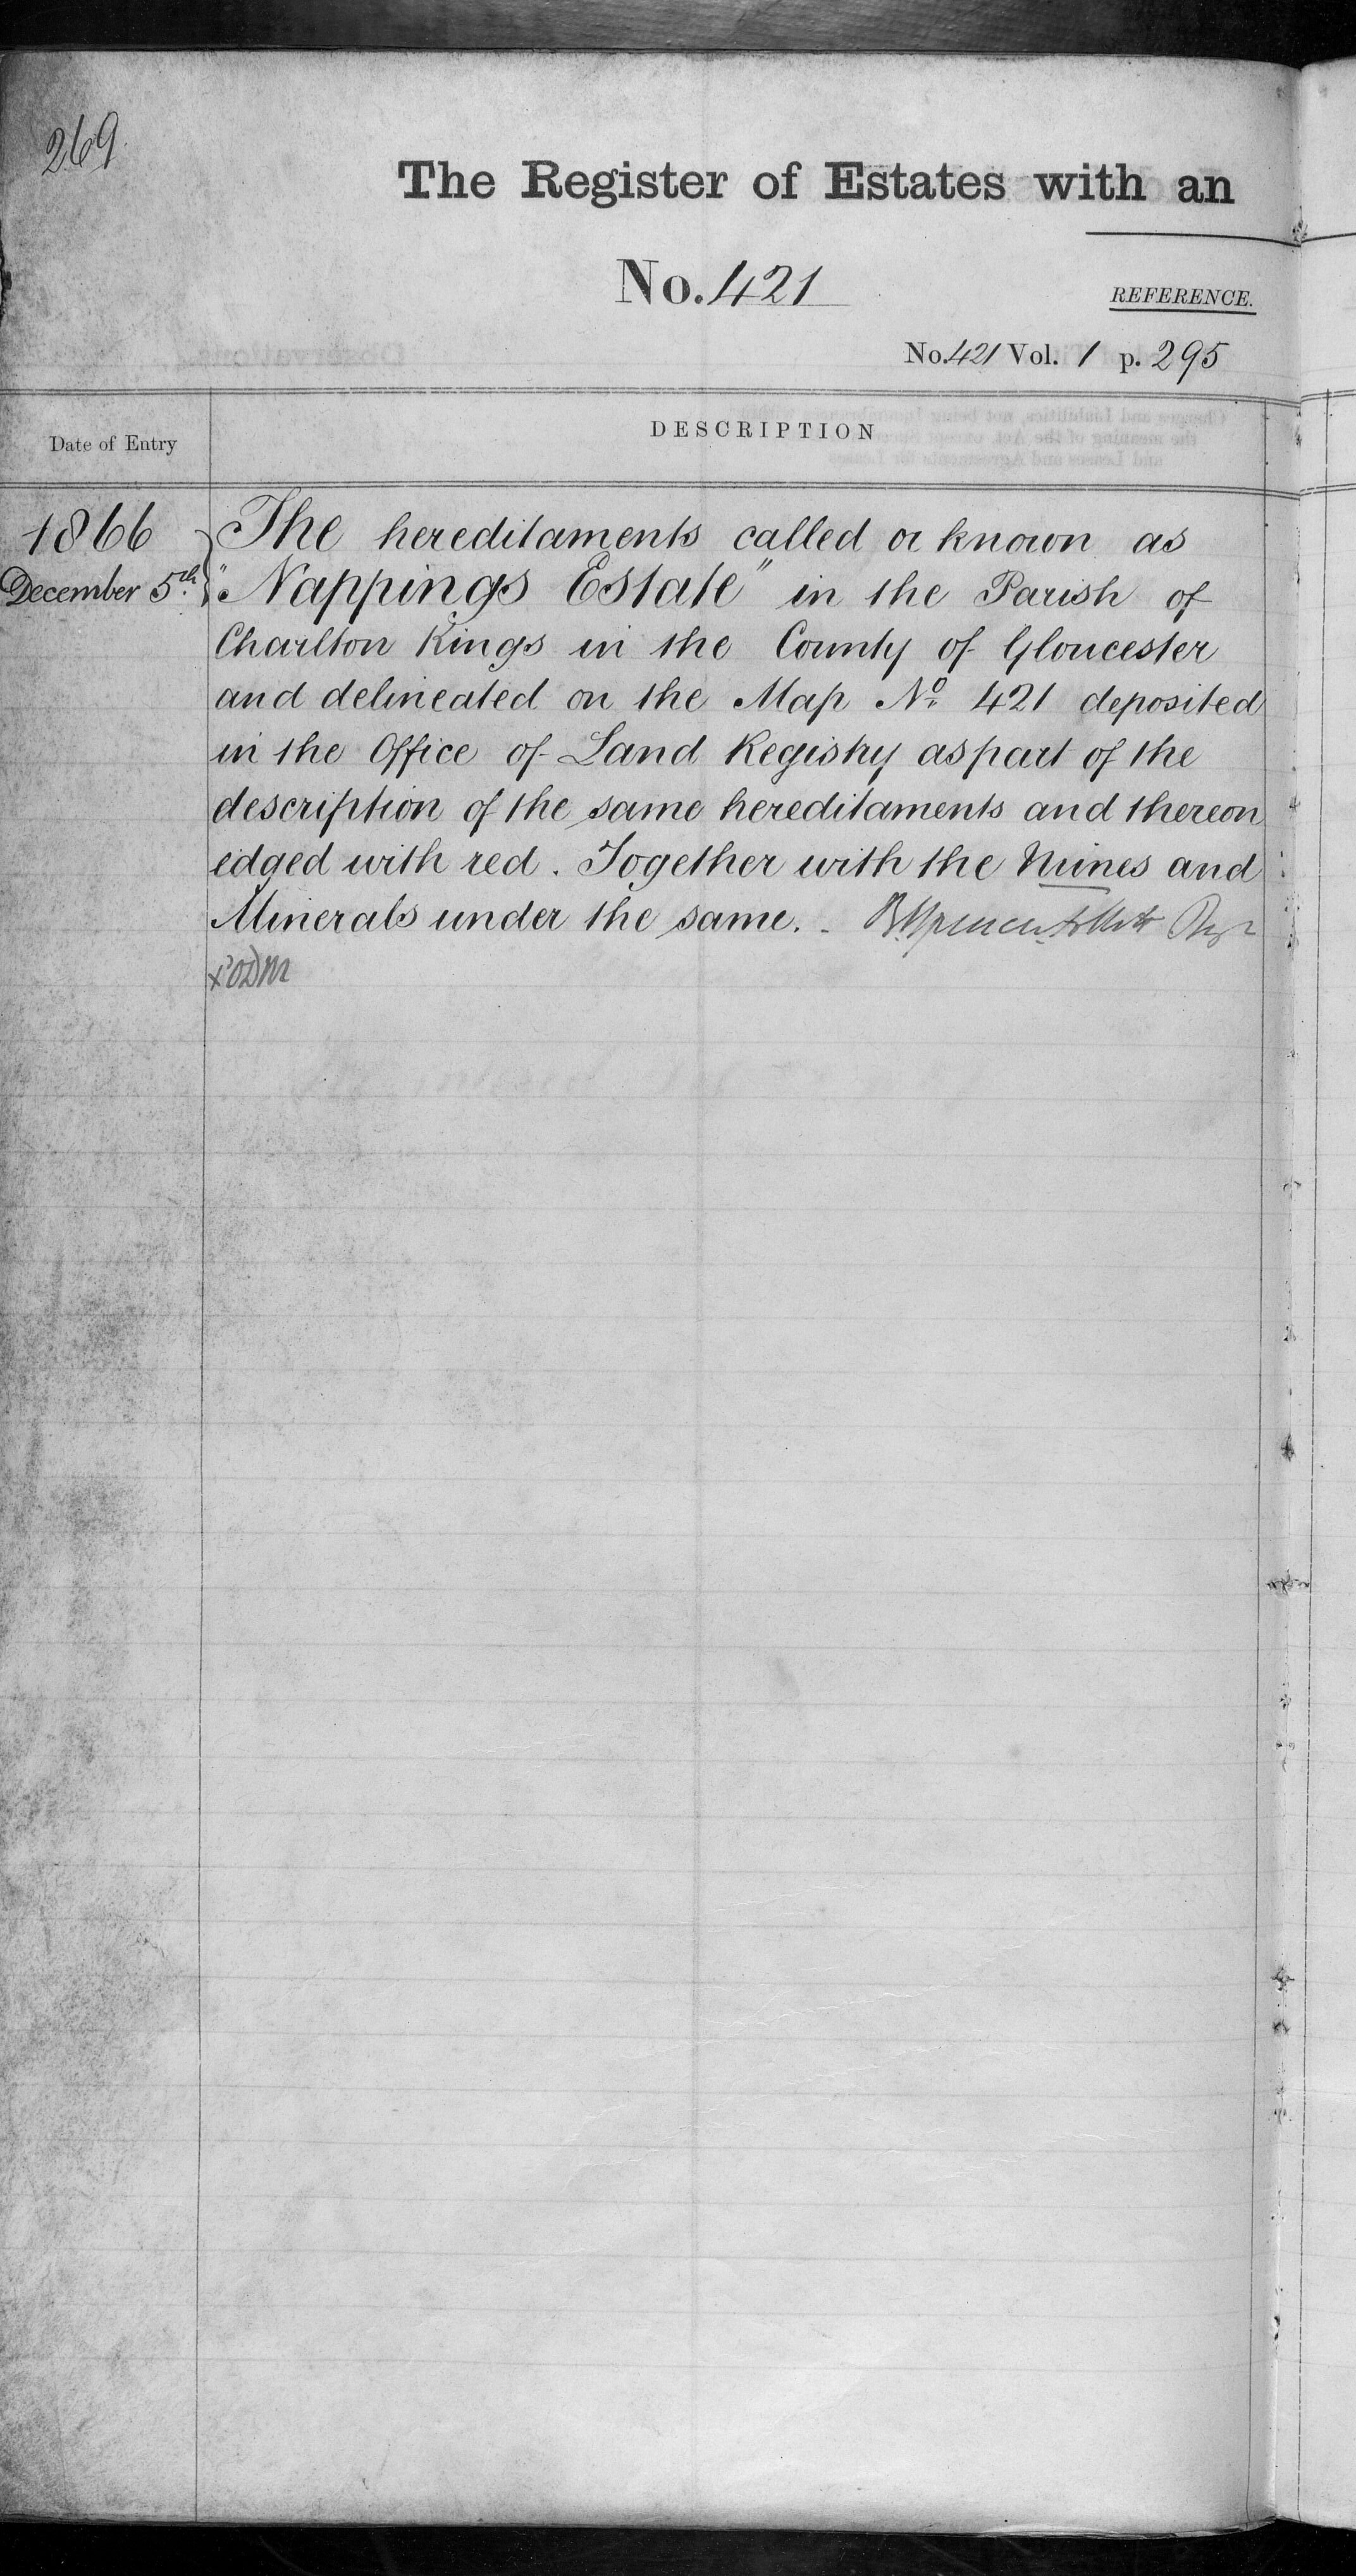 269
The Register of Estates with an
No. 421
REFERENCE.
No. 421 Vol. 1 p. 295
Date of Entry
DESCRIPTION
1866
December 5th.
The hereditaments called or known as
"Nappings Estate" in the Parish of
Charlton Kings in the County of Gloucester
and delineated on the Map No. 421 deposited
in the Office of Land Registry as part of the
description of the same hereditaments and thereon
edged with red. Together with the Mines and
Minerals under the same. -